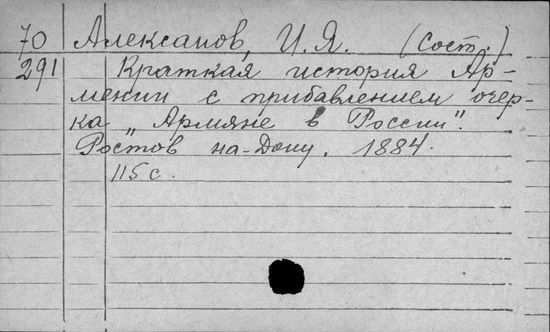 70 Алексанов, И. Я. (Сост.)
291 Краткая история Ар-
мении с прибавлением очер-
ка „Армяне в России".
Ростов на-Дону. 1884.
115 с.